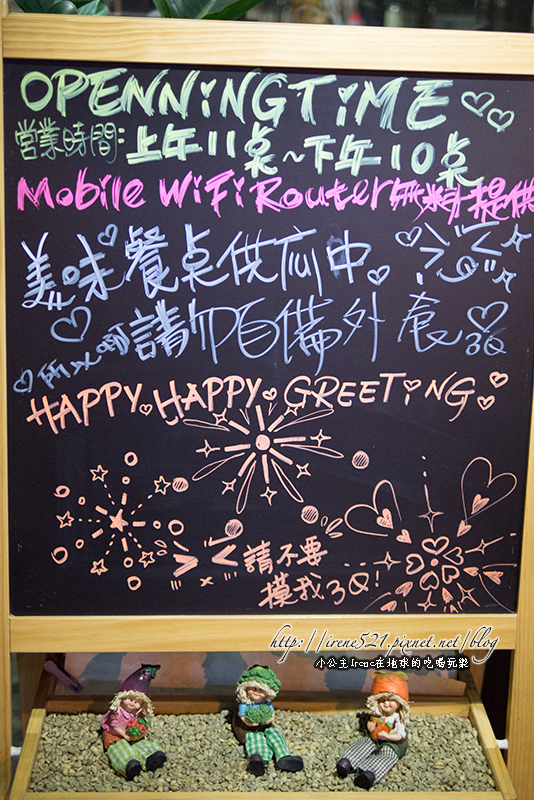 OPENNiNG TiME
営業時間:上午11点~下午10点
Mobile WiFi Router 無料提供
美味餐点供応中
所以啊請勿自備外食 3Q
HAPPY HAPPY GREETiNG
請不要
摸我3Q!
http://irene521.pixnet.net/blog
小公主Irene在地球的吃喝玩樂